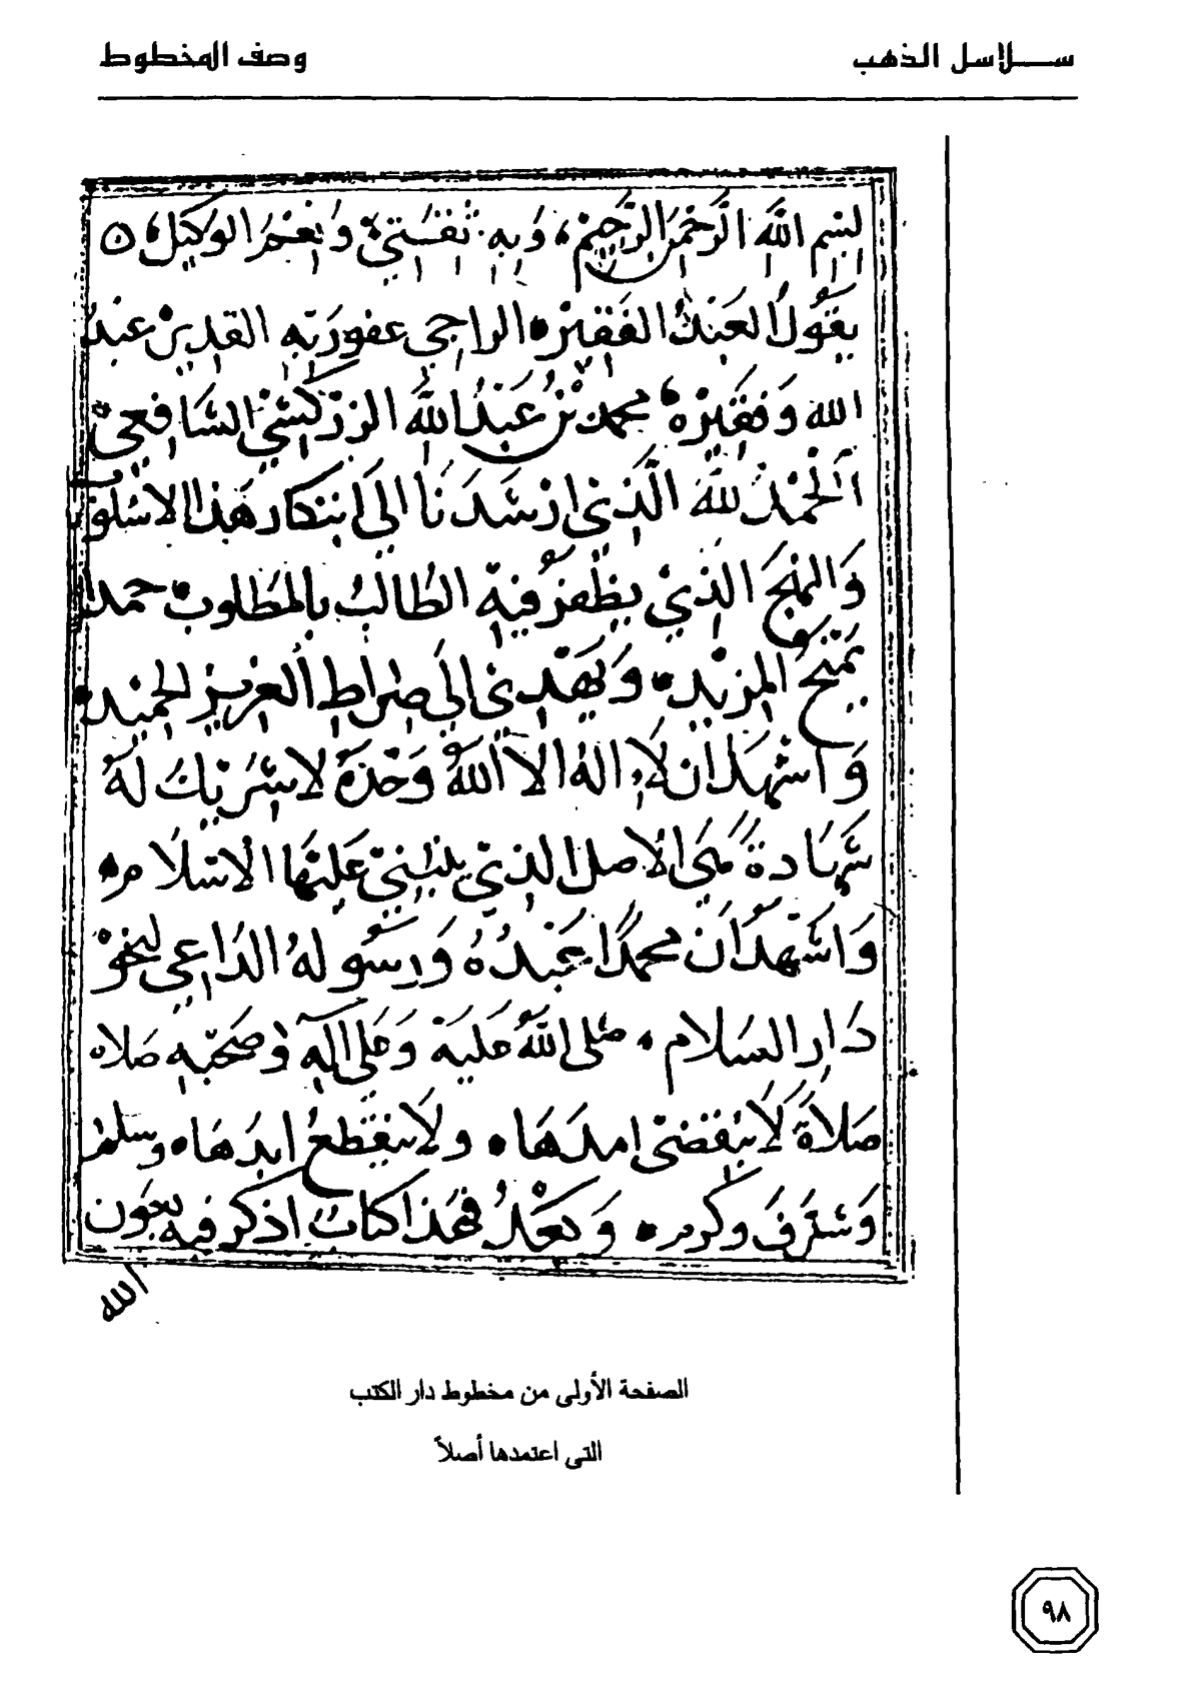 سلاسل الذهب
وصف المخطوط
بسم الله الرَّحمن الرَّحيم، وَبِهِ ثقتي وَنعم الوَكيل ه
يقُولُ العَبدُ الفَقيره الراجي عفوربه القدير عبد
الله وَفقيره محمد بن عَبدُ الله الزركشي الشافعي
اَلحمدُ للهِ الَّذي ارشَدَنَا الي ابتكار هَذا الاسلوب
وَالمنهج الذي يظفرُ فيه الطَالبُ بالمَطلوب حمدا
يمنحُ المزيد، وَيَهدِني الي صراط العزيز الحميد
وَاشهدان لاَ اله الا اللهُ وَحدَهُ لا شريك لَهُ
شهَادةً هيَ الاصل الذي ينبني عَليهَا الاسلام
وَاشهدُان محمدًا عَبدُهُ وَرسُولهُ الدَاعي لنحو
دَار السَلام، صلى اللهُ عليَه وَعلى اله وَصَحبه صلاه
صَلاةً لاَ ينقضي امدهَا، ولاَ ينقطعُ ابدهَا، وسلم
وَشرفَ وكرم، وَبَعدُ فهذا كتابٌ اذكر فيه بعَون
الله
الصفحة الأولى من مخطوط دار الكتب
التى اعتمدها أصلاً
٩٨